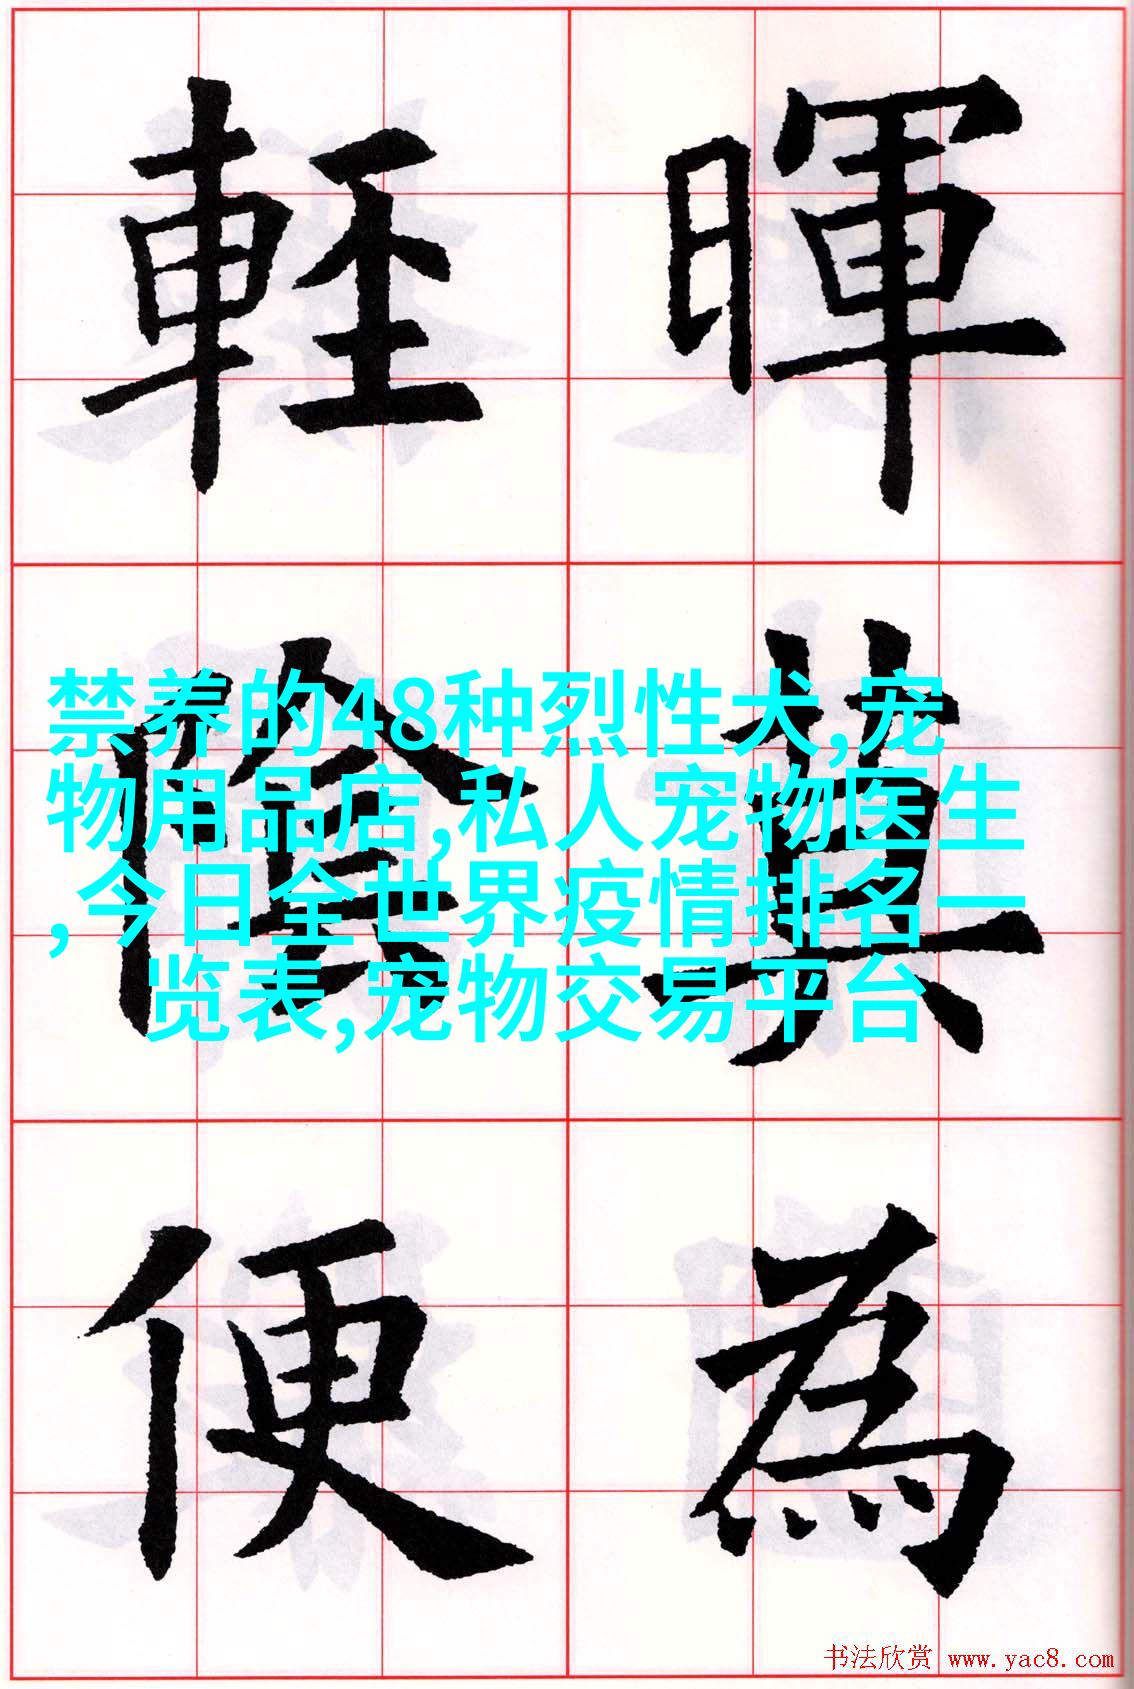 暉莫為
輕陰便
禁养的48种烈性犬,宠
物用品店,私人宠物医生
,今日全世界疫情排名一
览表,宠物交易平台
书法欣赏 www.yac8.com